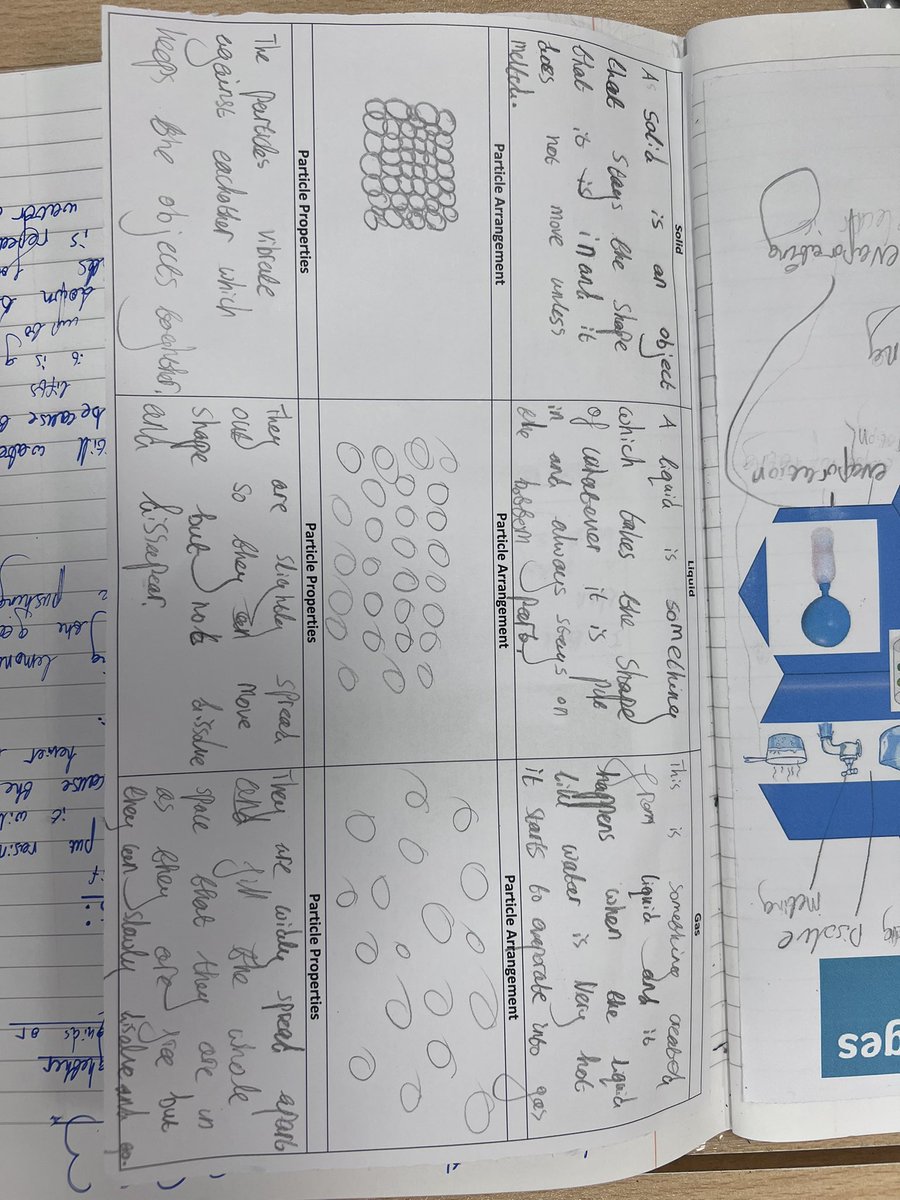 Solid
A solid is an object
that stays the shape
that it is in and it
does not move unless
melted.
Particle Arrangement
Particle Properties
The particles vibrate
against eachother which
keeps the objects
Liquid
A liquid is something
which takes the shape
of whatever it is put
in and always stays on
the bottom
Particle Arrangement
Particle Properties
They are slightly spread
out so they can move
shape but not dissolve
and
Gas
This is something created
from liquid and it
happens when the liquid
like water is very hot
it starts to evaporate into gas
Particle Arrangement
Particle Properties
They are widly spread apart
and fill the whole
space that they are in
as they are free but
they can slowly
evaporating
evaporation
melting
Dissolve
ges
water
is
down
up to
it is
lifts
because
will water
pushing
the
lemon
cause the
it will
put
it
whether